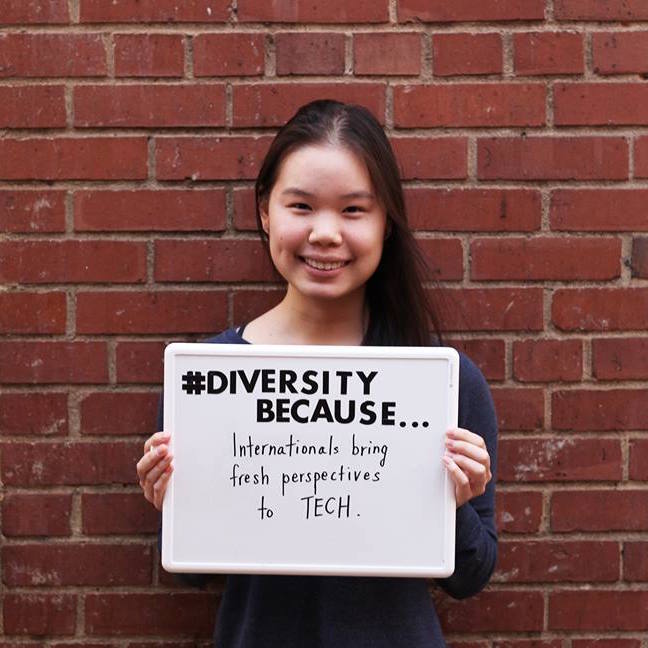 #DIVERSITY
BECAUSE...
Internationals bring
fresh perspectives
to TECH.